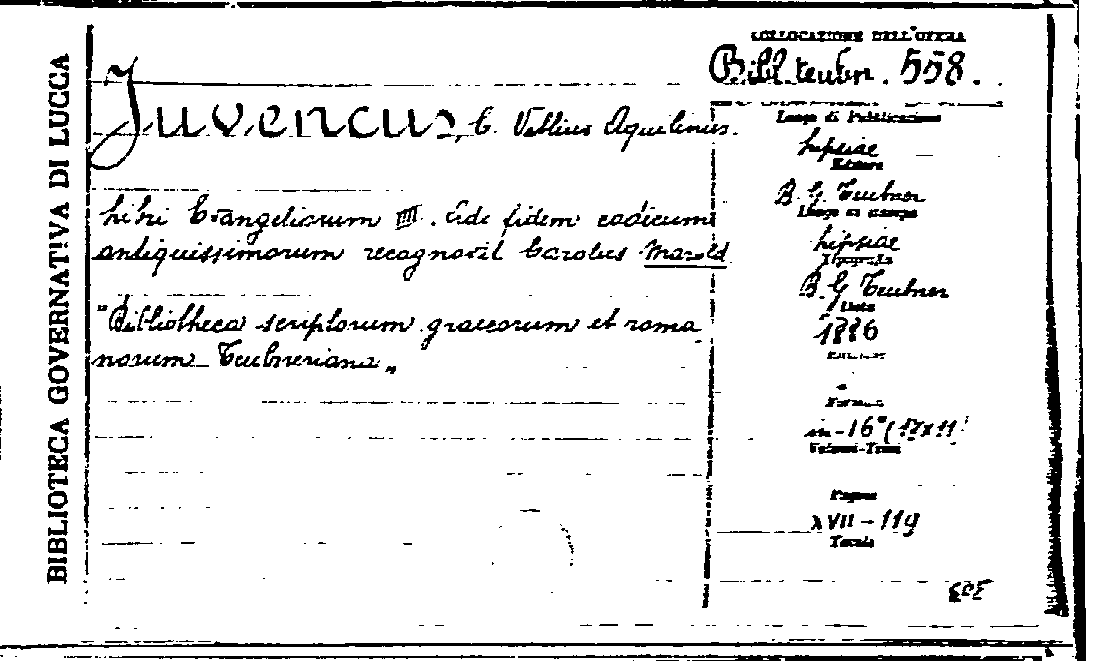 BIBLIOTECA GOVERNATIVA DI LUCCA
COLLOCAZIONE DELL'OPERA
Bibl. teubn. 558.
Juvencus, C. Vettius Aquilinus.
Libri Evangeliorum IIII. Ad fidem codicum
antiquissimorum recognovit Carolus Marold
"Bibliotheca scriptorum graecorum et roma
norum Teubneriana„
Luogo di Pubblicazione
Lipsiae
Editore
B. G. Teubner
Luogo di stampa
Lipsiae
Tipografo
B. G. Teubner
Data
1886
Edizione
Formato
in-16° (17x11)
Volumi-Tomi
Pagine
XVII - 119
Tavole